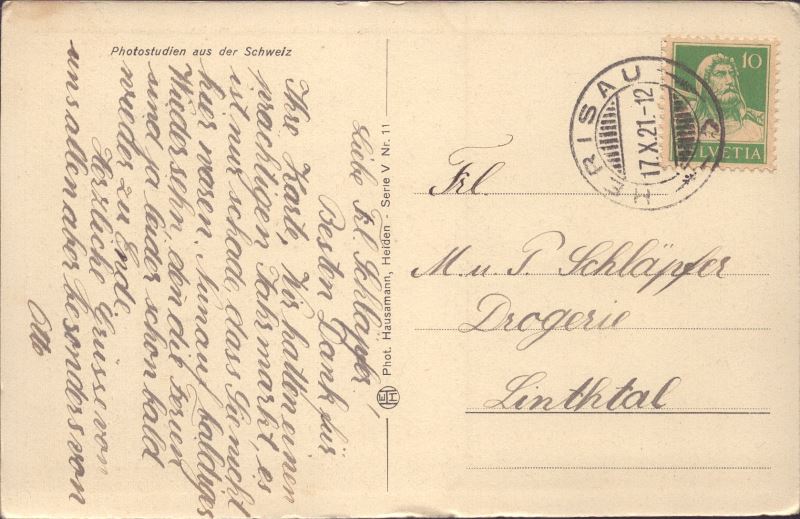 Photostudien aus der Schweiz
Liebe Frl. Schläpfer!
Besten Dank für
Ihre Karte, Wir hatten einen
prächtigen Jahrmarkt, es
ist nur schade dass Sie nicht
hier waren. Nun auf baldiges
Wiedersehn den die Ferien
sind ja leider schon bald
wieder zu Ende.
Herzliche Grüsse von
uns allen aber besonders von
Otto
Phot. Hausamann, Heiden - Serie V Nr. 11
EHH
HERISAU
17.X.21.-12
10
HELVETIA
Frl.
M. u. P. Schläpfer
Drogerie
Linthtal